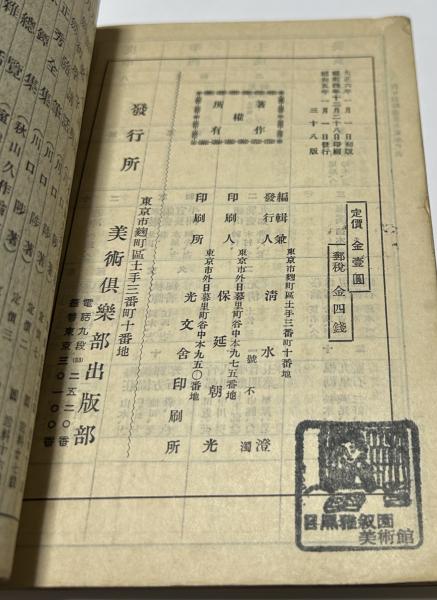 大正六年 月 一日初版
昭和四年十二月二十八日印刷
昭和五年 一月 一日發行
三十八版
定價 金壹圓
郵税 金四錢
著作
權
所有
東京市麴町區土手三番町十番地
編輯兼
發行人 清水 澄
二號不濁
東京市外日暮里町谷中本九七五番地
印刷人 保延朝光
東京市外日暮里町谷中本九五〇番地
印刷所 光文舍印刷所
發行所
東京市麴町區土手三番町十番地
美術倶樂部出版部
電話九段(33)二五二〇番
振替東京三〇一〇〇番
目黒雅叙園
美術館